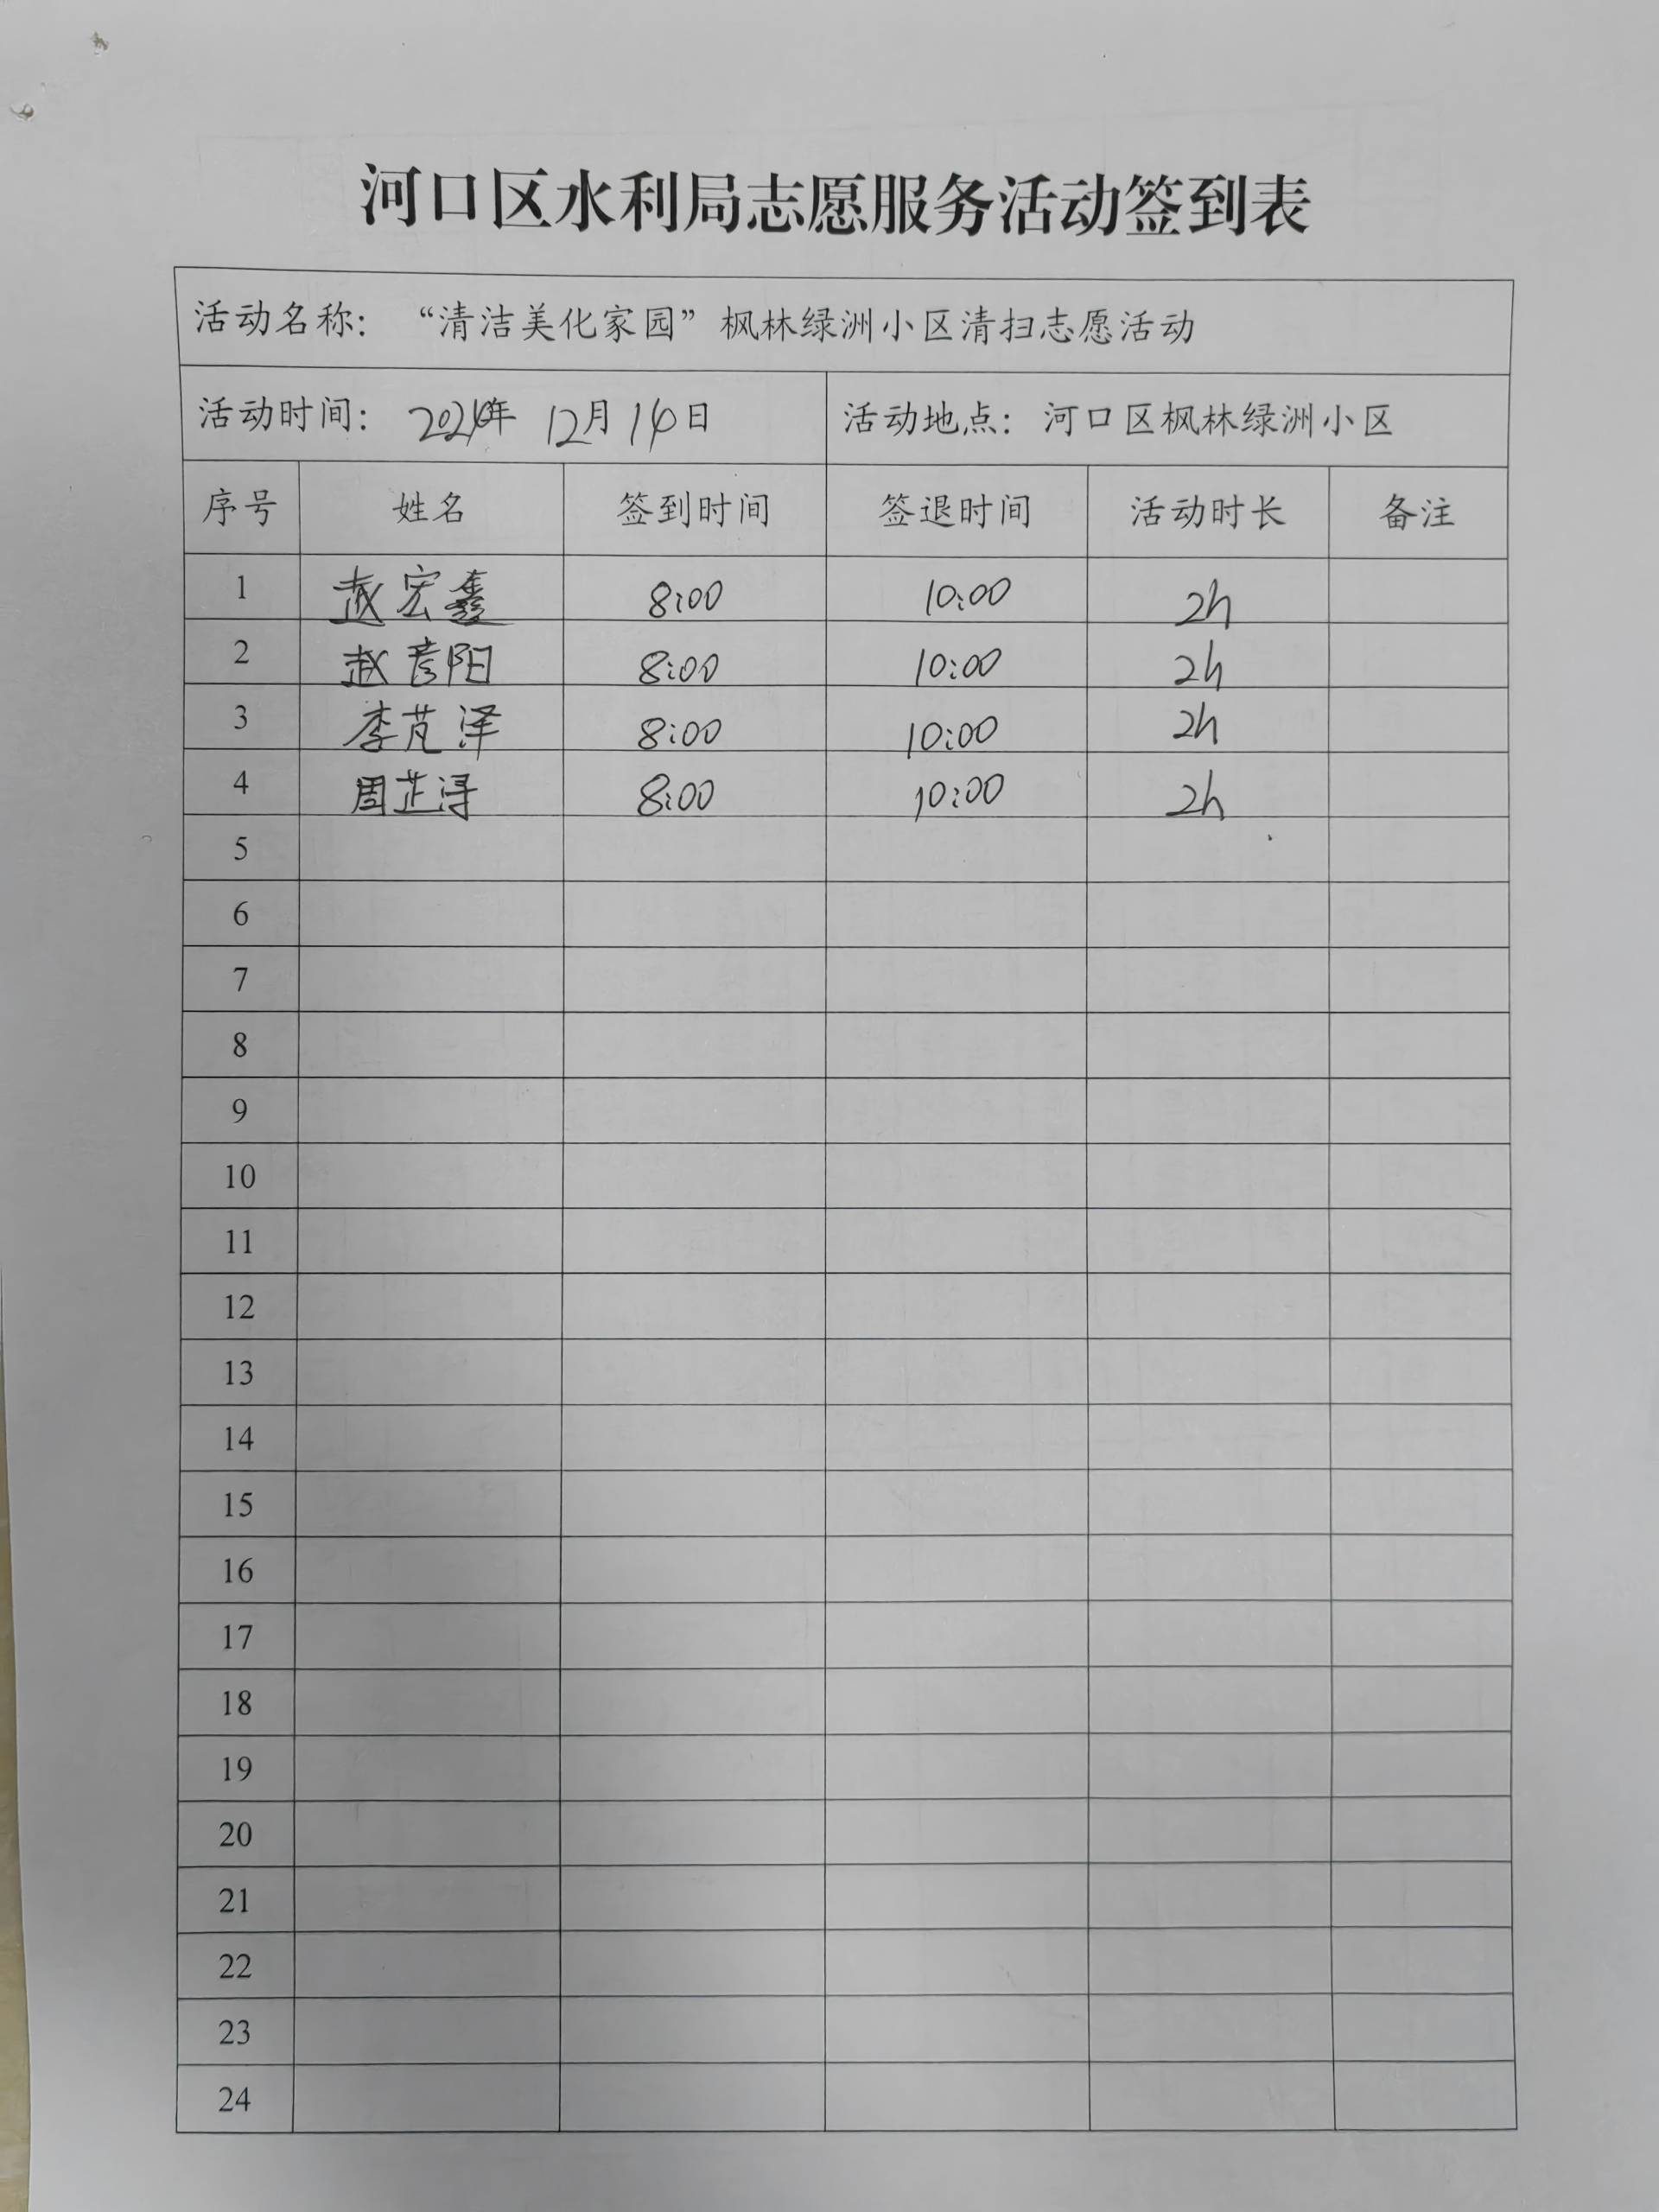 河口区水利局志愿服务活动签到表
活动名称： “清洁美化家园”枫林绿洲小区清扫志愿活动
活动时间： 2024年 12月14日 活动地点： 河口区枫林绿洲小区
序号 姓名 签到时间 签退时间 活动时长 备注
1 赵宏鑫 8:00 10:00 2h
2 赵彦阳 8:00 10:00 2h
3 李芃泽 8:00 10:00 2h
4 周芷浔 8:00 10:00 2h
5
6
7
8
9
10
11
12
13
14
15
16
17
18
19
20
21
22
23
24